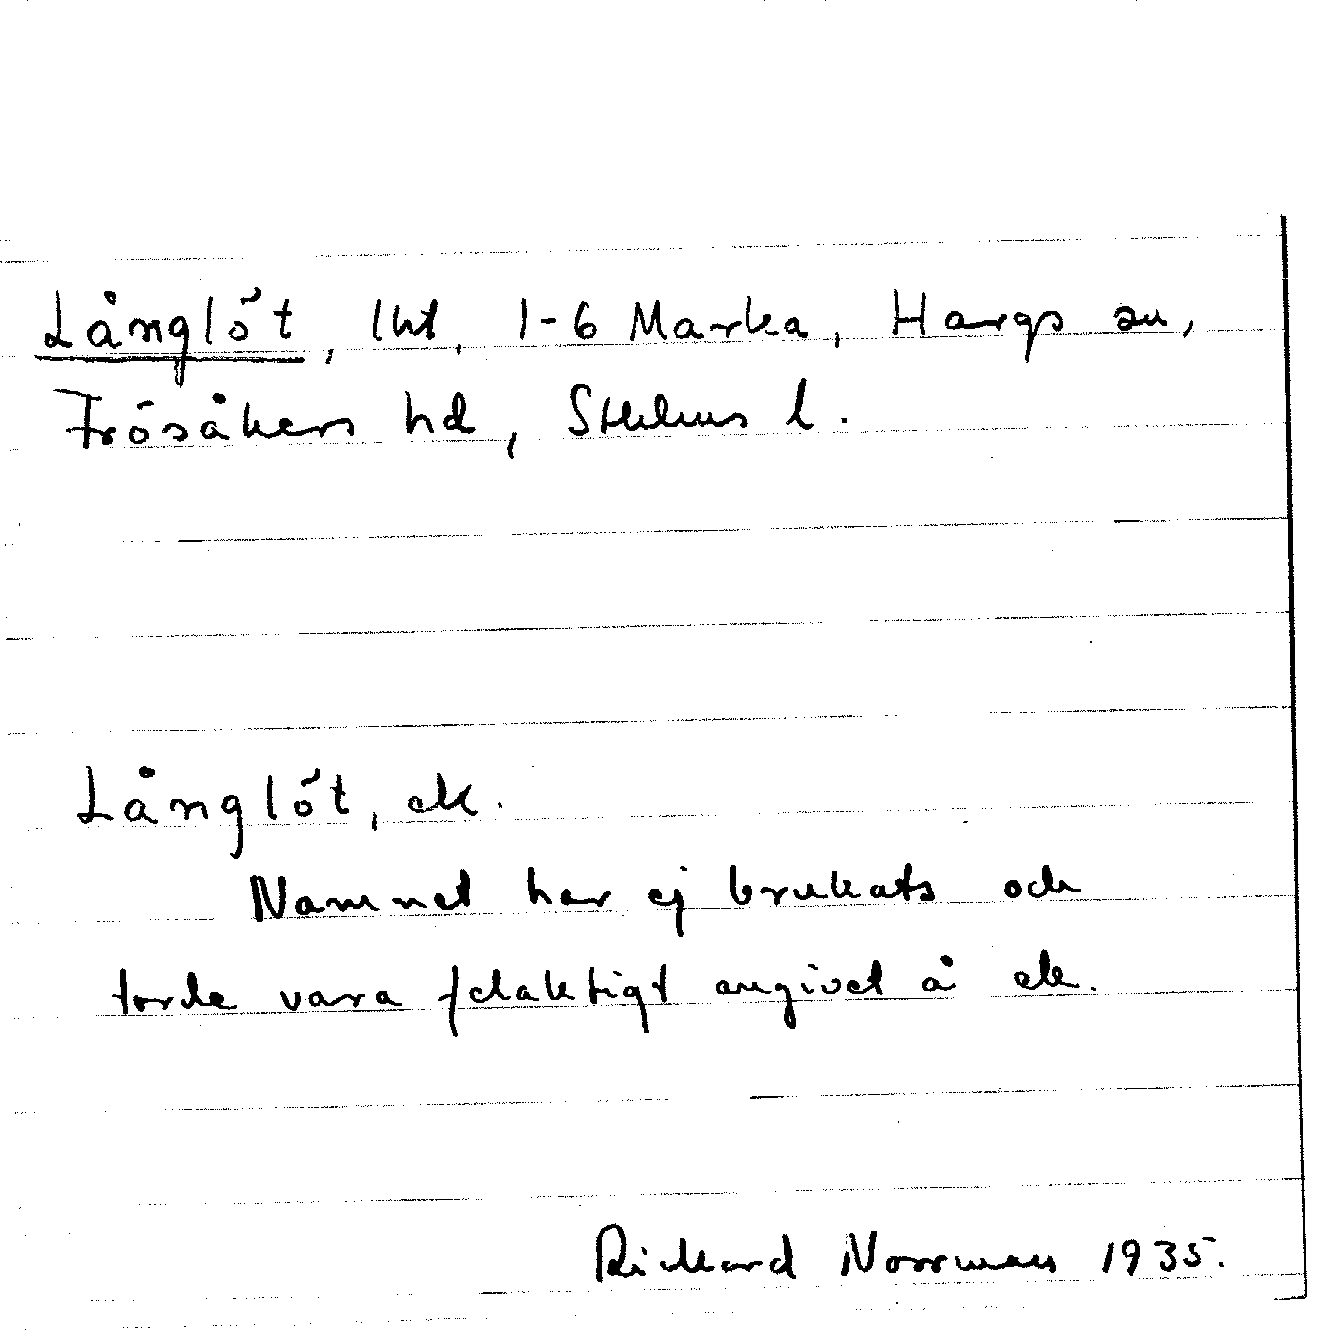 Långlöt, lht, 1-6 Marka, Hargs sn,
Frösåkers hd, Sthlms l.
Långlöt, ek.
Namnet har ej brukats och
torde vara felaktigt angivet å ek.
Rickard Norrman 1935.